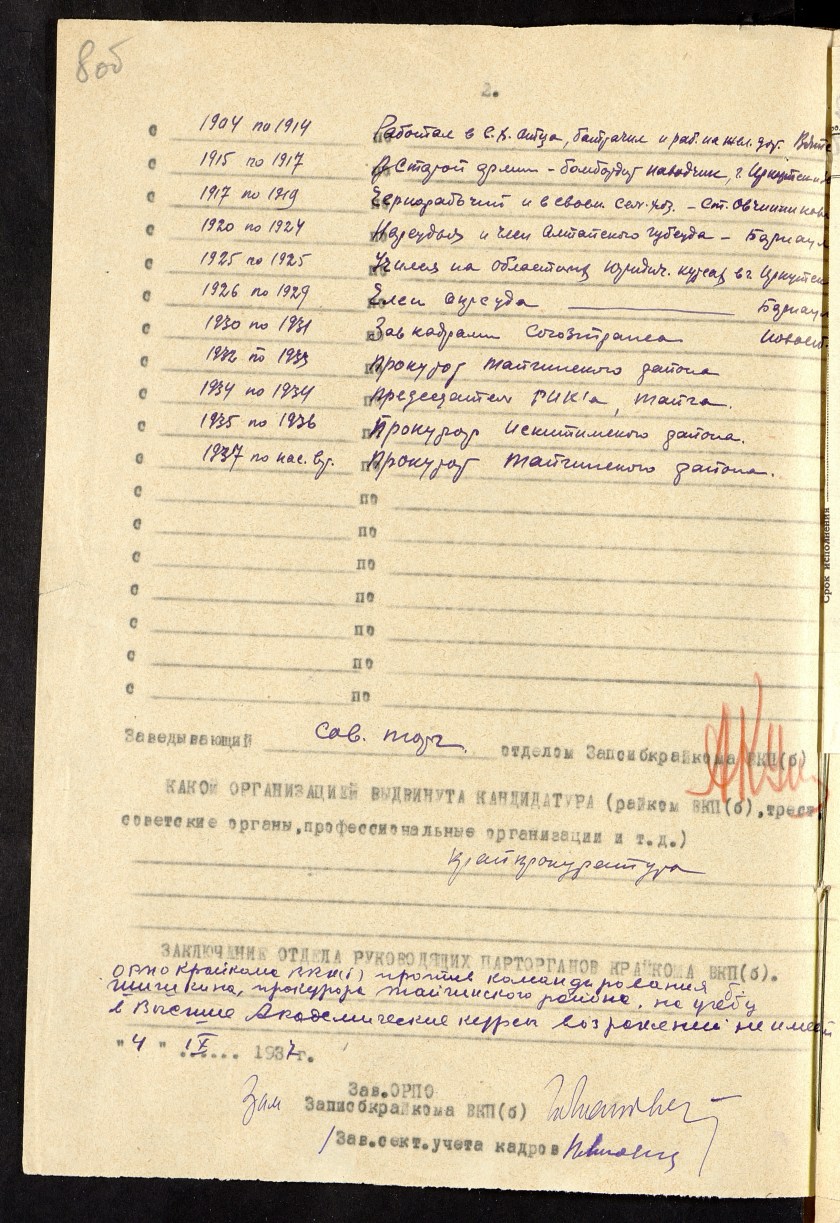 8 об
2.
с 1904 по 1914 Работал в С.Х. отца, батрачил и раб. на жел. дор.
с 1915 по 1917 В Старой армии - бомбардир наводчик, г. Иркутск
с 1917 по 1919 Чернорабочий и в своем сел. хоз. - ст. Овчинниково
с 1920 по 1924 Нарсудья и член Алтайского губсуда - Барнаул
с 1925 по 1925 Учился на областных юридич. курсах в г. Иркутске
с 1926 по 1929 Член окрсуда Барнаул
с 1930 по 1931 Зав кадрами Союзтранса Новосиб.
с 1932 по 1933 Прокурор Тайгинского района
с 1934 по 1934 Председатель РИК'а, Тайга.
с 1935 по 1936 Прокурор Искитимского района.
с 1937 по нас. вр. Прокурор Тайгинского района.
с по
с по
с по
с по
с по
с по
с по
Заведывающий Сов. торг. отделом Запсибкрайкома ВКП(б)
КАКОЙ ОРГАНИЗАЦИЕЙ ВЫДВИНУТА КАНДИДАТУРА (райком ВКП(б), трест
советские органы, профессиональные организации и т.д.)
Крайпрокуратура
ЗАКЛЮЧЕНИЕ ОТДЕЛА РУКОВОДЯЩИХ ПАРТОРГАНОВ КРАЙКОМА ВКП(б).
ОРПО Крайкома ВКП(б) против командирования
Шишкина, прокурора Тайгинского района, на учебу
в Высшие Академические курсы возражений не имеет
"4" IX 1937 г.
Зав. ОРПО
Зам Запсибкрайкома ВКП(б)
/Зав. сект. учета кадров
Срок исполнения